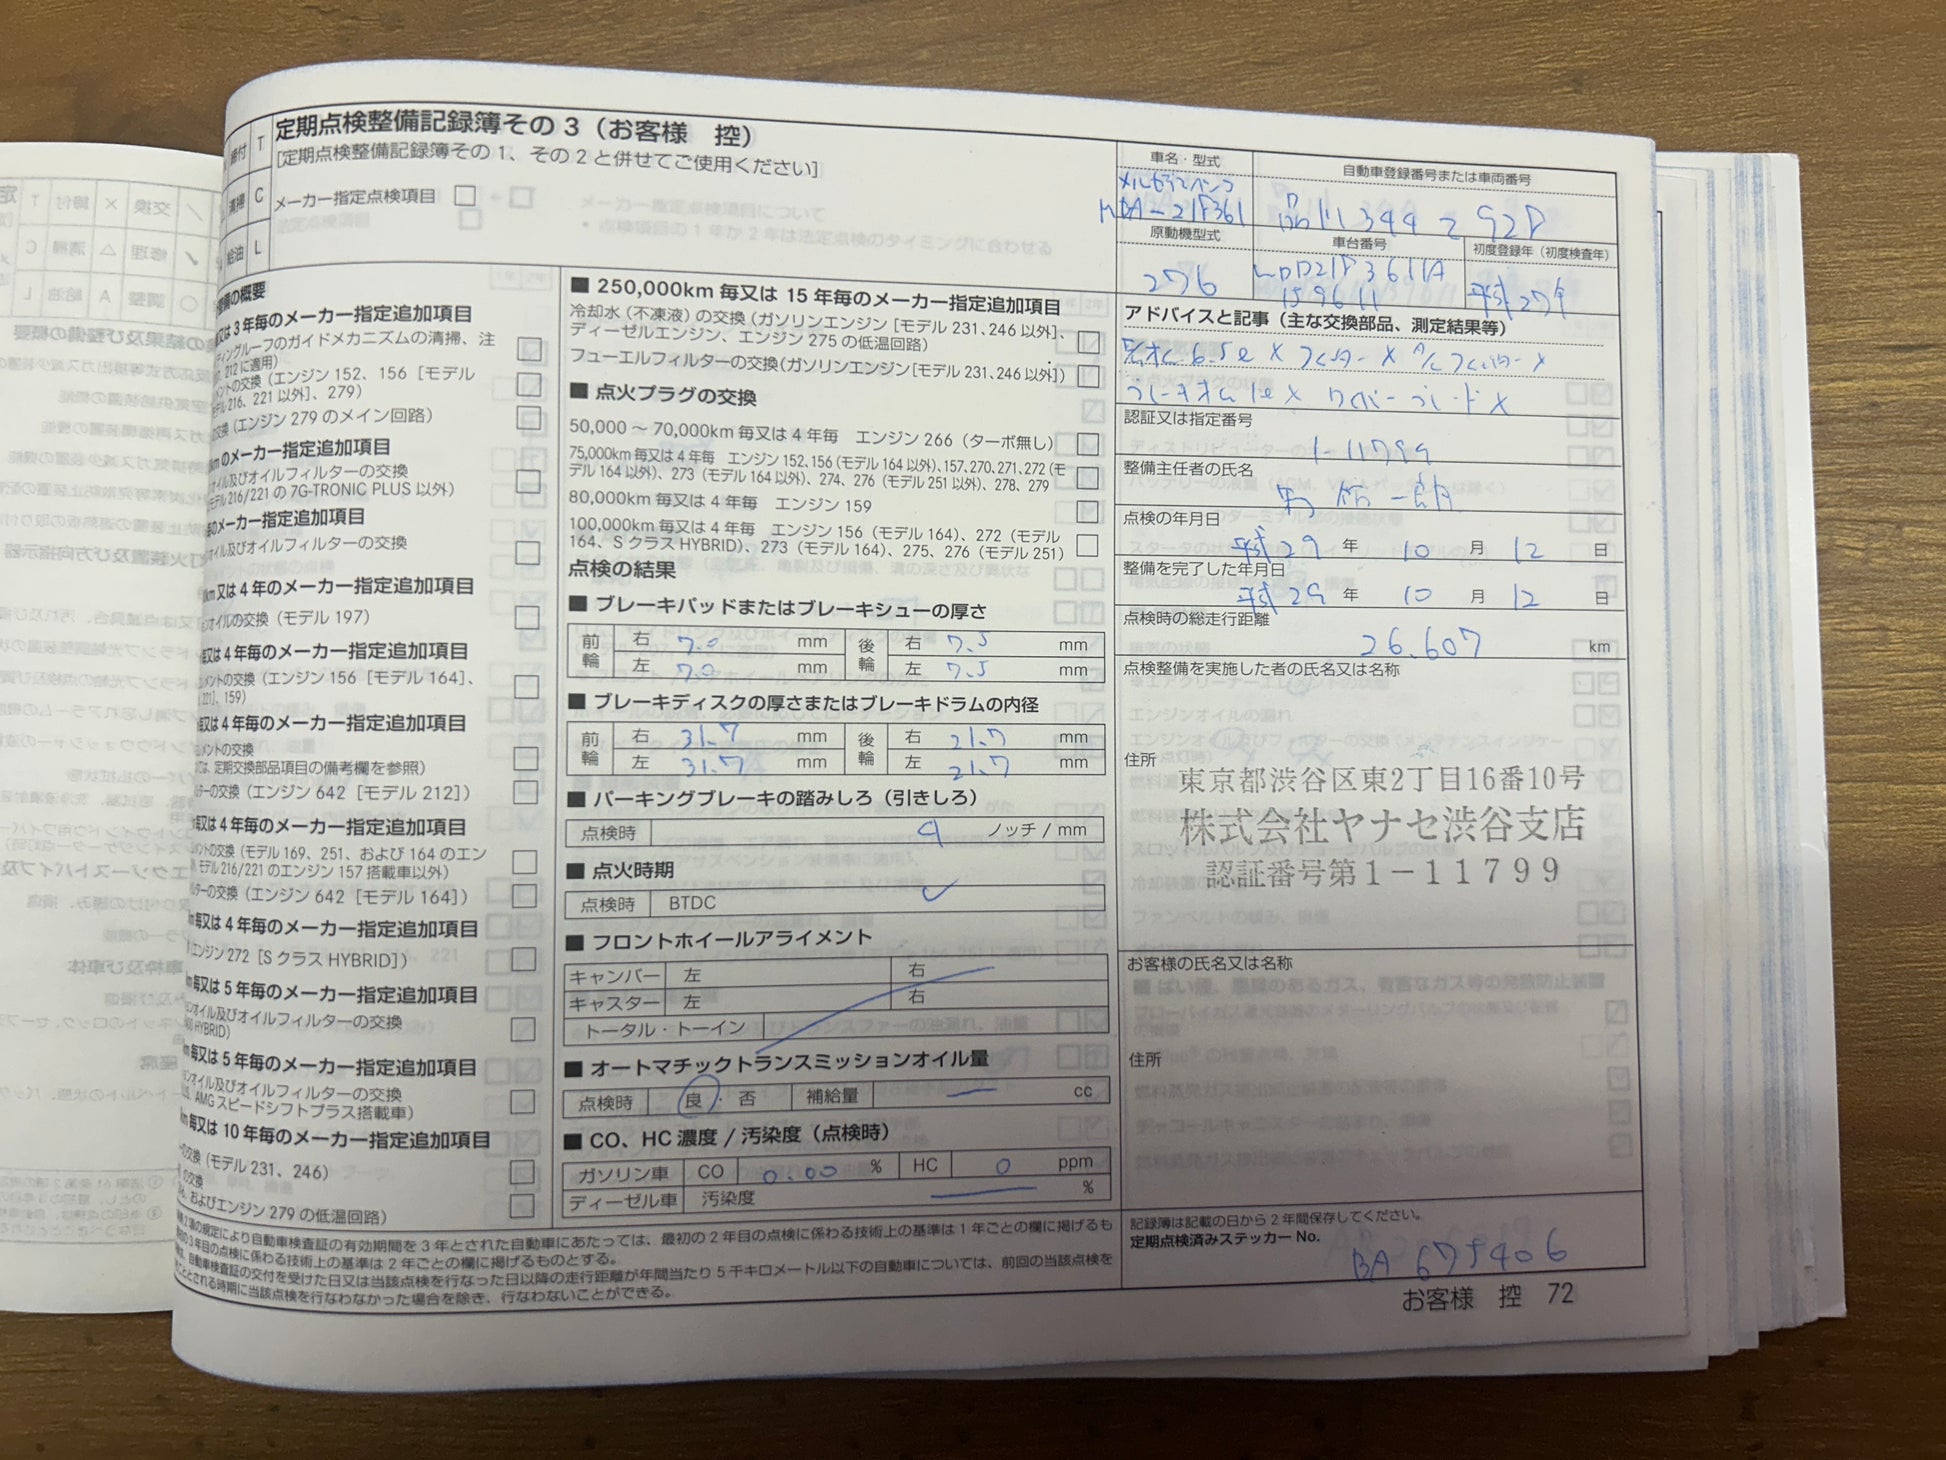 定期点検整備記録簿その3（お客様 控）
[定期点検整備記録簿その1、その2と併せてご使用ください]
締付 T
清掃 C
給油 L
メーカー指定点検項目
車名・型式
メルセデスベンツ
自動車登録番号または車両番号
原動機型式
276
車台番号
初度登録年（初度検査年）
平成27年
整備の概要
又は3年毎のメーカー指定追加項目
ディングルーフのガイドメカニズムの清掃、注
、212に適用）
メントの交換（エンジン152、156［モデル
モデル216、221以外］、279）
の交換（エンジン279のメイン回路）
kmのメーカー指定追加項目
オイル及びオイルフィルターの交換
モデル216/221の7G-TRONIC PLUS以外）
毎のメーカー指定追加項目
オイル及びオイルフィルターの交換
km又は4年毎のメーカー指定追加項目
オイルの交換（モデル197）
毎又は4年毎のメーカー指定追加項目
メントの交換（エンジン156［モデル164］、
221］、159）
毎又は4年毎のメーカー指定追加項目
メントの交換
ては、定期交換部品項目の備考欄を参照）
ルターの交換（エンジン642［モデル212］）
毎又は4年毎のメーカー指定追加項目
メントの交換（モデル169、251、および164のエン
モデル216/221のエンジン157搭載車以外）
ルターの交換（エンジン642［モデル164］）
km毎又は4年毎のメーカー指定追加項目
エンジン272［SクラスHYBRID］）
km毎又は5年毎のメーカー指定追加項目
オイル及びオイルフィルターの交換
HYBRID）
km毎又は5年毎のメーカー指定追加項目
オイル及びオイルフィルターの交換
AMGスピードシフトプラス搭載車）
km毎又は10年毎のメーカー指定追加項目
の交換（モデル231、246）
の交換
およびエンジン279の低温回路）
■ 250,000km毎又は15年毎のメーカー指定追加項目
冷却水（不凍液）の交換（ガソリンエンジン［モデル231､246以外］､
ディーゼルエンジン、エンジン275の低温回路）
フューエルフィルターの交換（ガソリンエンジン［モデル231､246以外］）
■ 点火プラグの交換
50,000〜70,000km毎又は4年毎 エンジン266（ターボ無し）
75,000km毎又は4年毎 エンジン152､156（モデル164以外）､157､270､271､272（モ
デル164以外）、273（モデル164以外）、274、276（モデル251以外）、278、279
80,000km毎又は4年毎 エンジン159
100,000km毎又は4年毎 エンジン156（モデル164）、272（モデル
164、SクラスHYBRID）、273（モデル164）、275、276（モデル251）
点検の結果
■ ブレーキパッドまたはブレーキシューの厚さ
前輪 右 7.0 mm 後輪 右 7.5 mm
左 7.0 mm 左 7.5 mm
■ ブレーキディスクの厚さまたはブレーキドラムの内径
前輪 右 31.7 mm 後輪 右 21.7 mm
左 31.7 mm 左 21.7 mm
■ パーキングブレーキの踏みしろ（引きしろ）
点検時 9 ノッチ / mm
■ 点火時期
点検時 BTDC ✓
■ フロントホイールアライメント
キャンバー 左 右
キャスター 左 右
トータル・トーイン
■ オートマチックトランスミッションオイル量
点検時 良・否 補給量 — cc
■ CO、HC濃度 / 汚染度（点検時）
ガソリン車 CO 0.00 % HC 0 ppm
ディーゼル車 汚染度 — %
アドバイスと記事（主な交換部品、測定結果等）
認証又は指定番号
1-11799
整備主任者の氏名
点検の年月日
平成 29 年 10 月 12 日
整備を完了した年月日
平成 29 年 10 月 12 日
点検時の総走行距離
26.607 km
点検整備を実施した者の氏名又は名称
住所
東京都渋谷区東2丁目16番10号
株式会社ヤナセ渋谷支店
認証番号第1−11799
お客様の氏名又は名称
住所
記録簿は記載の日から2年間保存してください。
定期点検済みステッカー No.
BA 675406
2項の規定により自動車検査証の有効期間を3年とされた自動車にあたっては、最初の2年目の点検に係わる技術上の基準は1年ごとの欄に掲げるも
の3年目の点検に係わる技術上の基準は2年ごとの欄に掲げるものとする。
自動車検査証の交付を受けた日又は当該点検を行なった日以降の走行距離が年間当たり5千キロメートル以下の自動車については、前回の当該点検を
こととされる時期に当該点検を行なわなかった場合を除き、行なわないことができる。
お客様 控 72